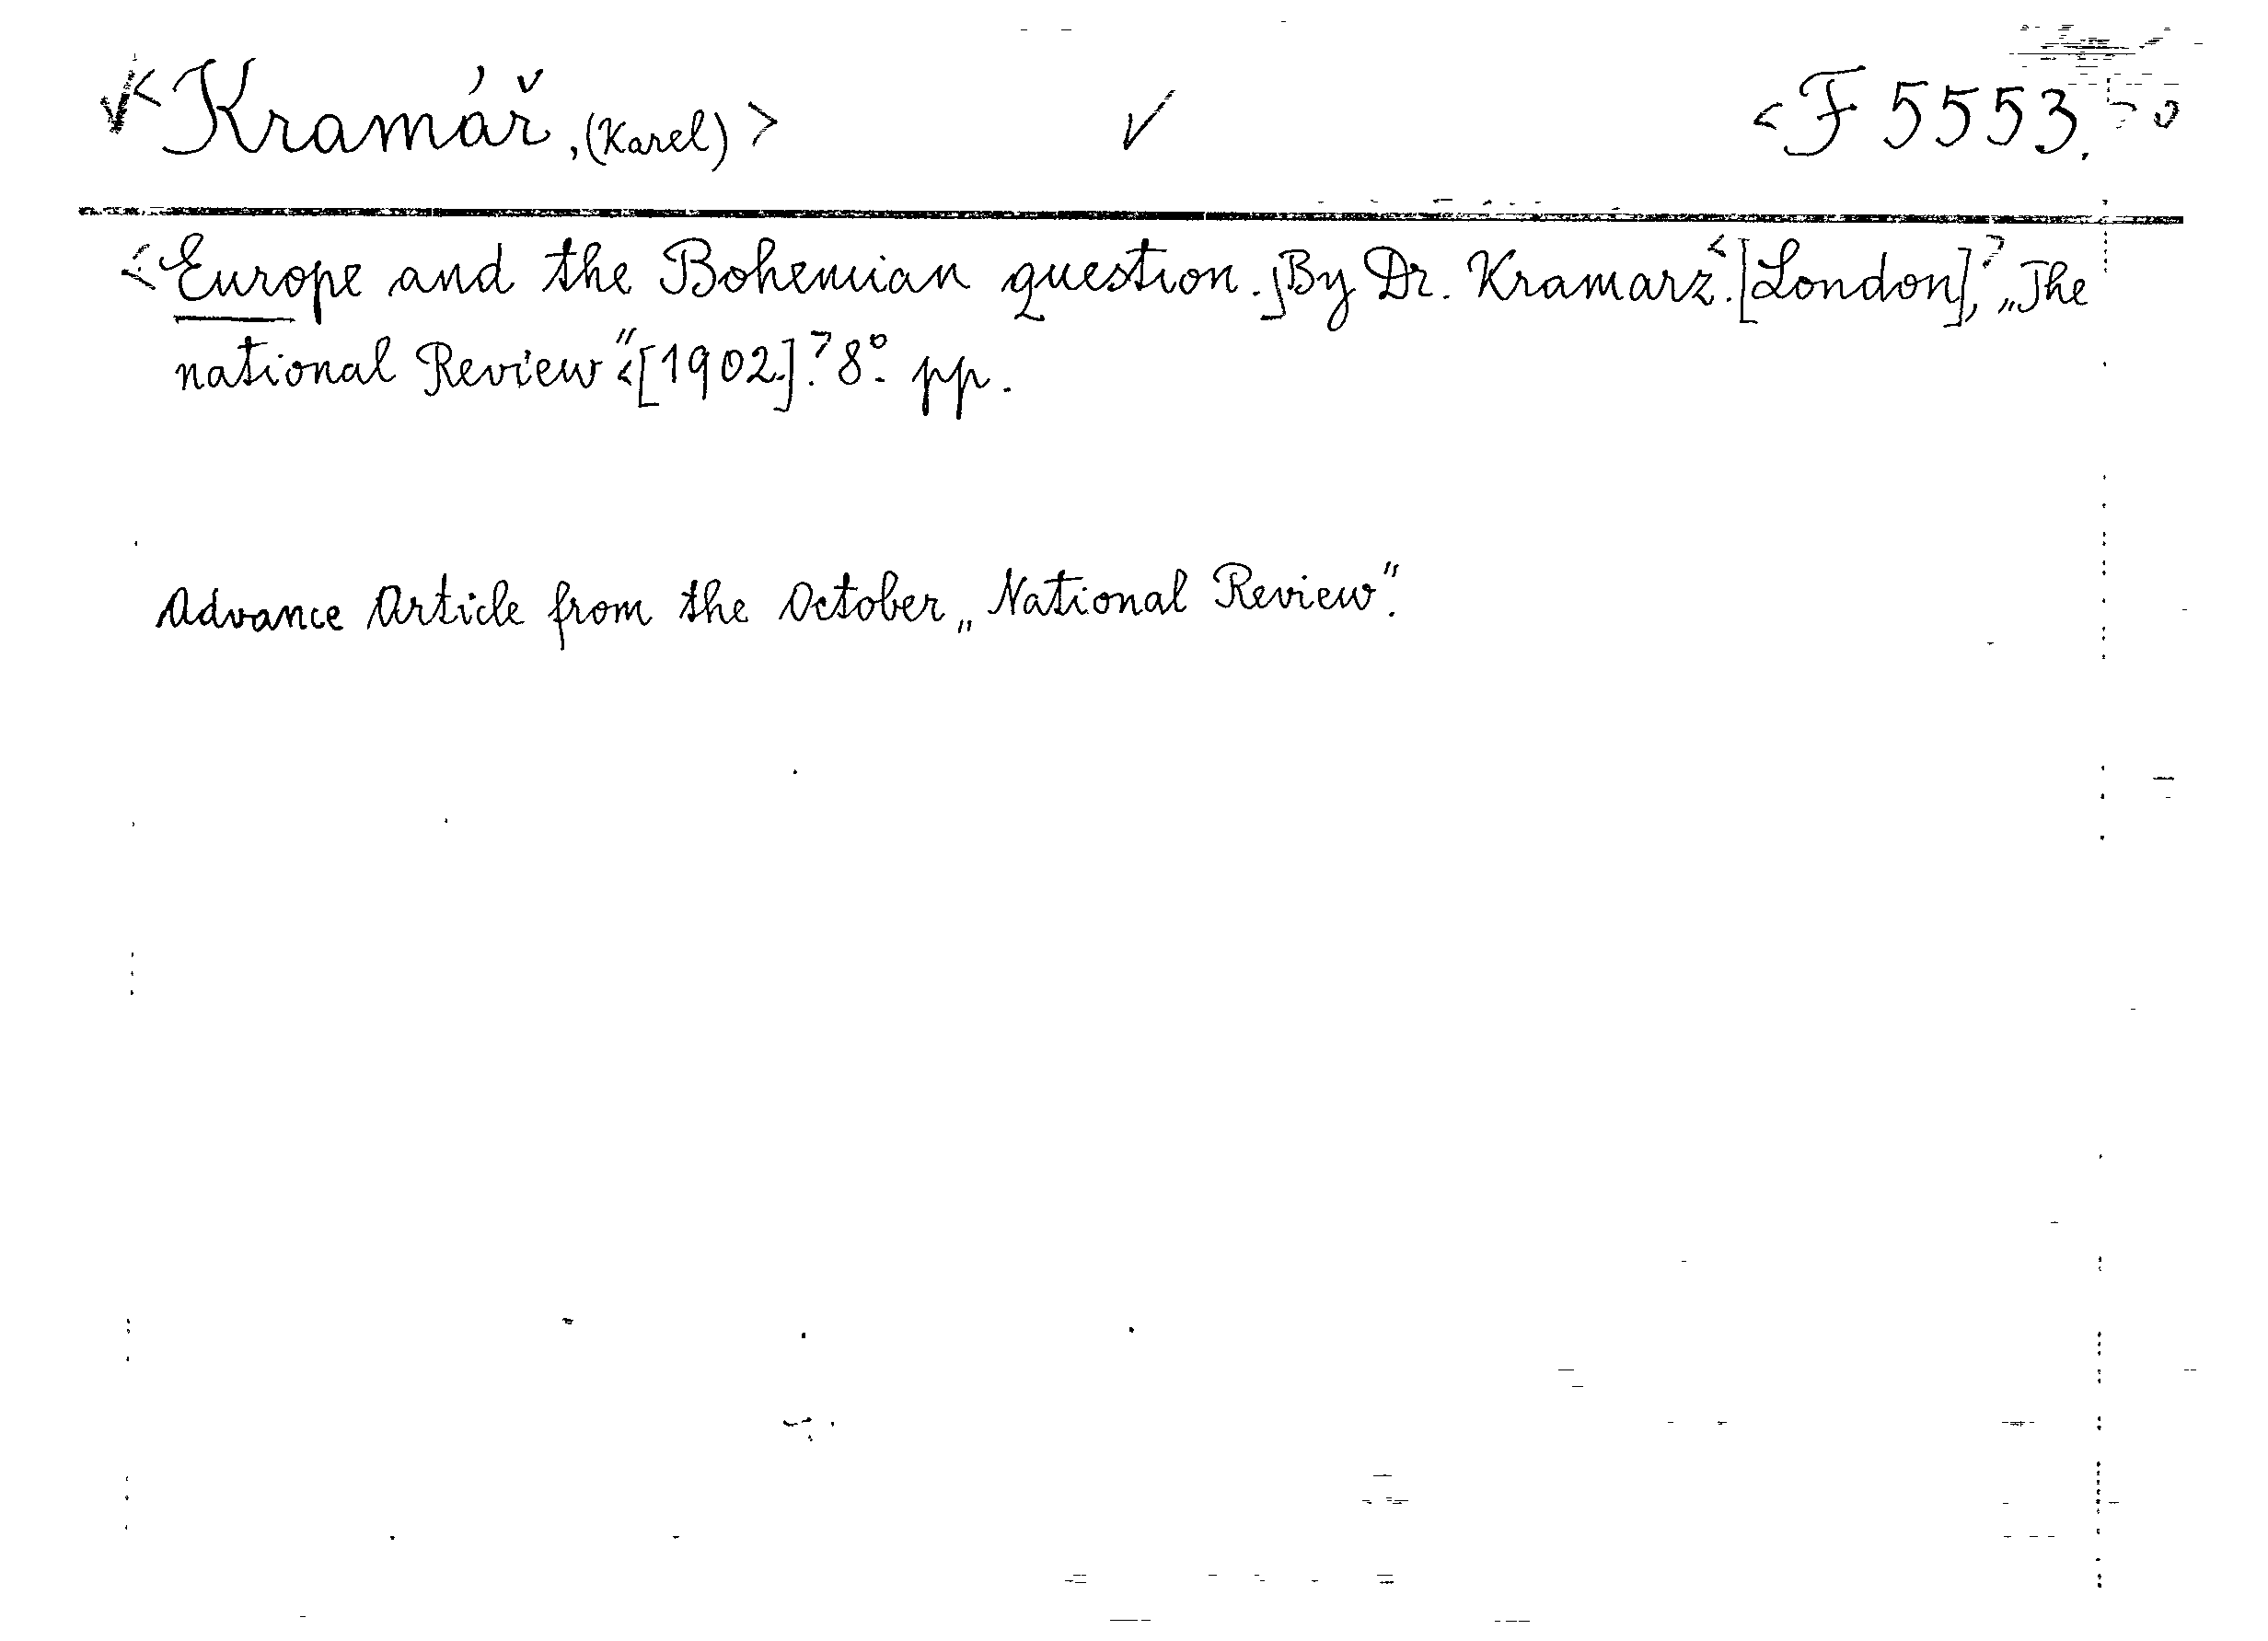 <Kramář, (Karel)> √ <F 5553.>
<Europe and the Bohemian question.] By Dr. Kramarz.<[London],> „The
national Review“<[1902].> 8°. pp.
Advance Article from the October „National Review“.